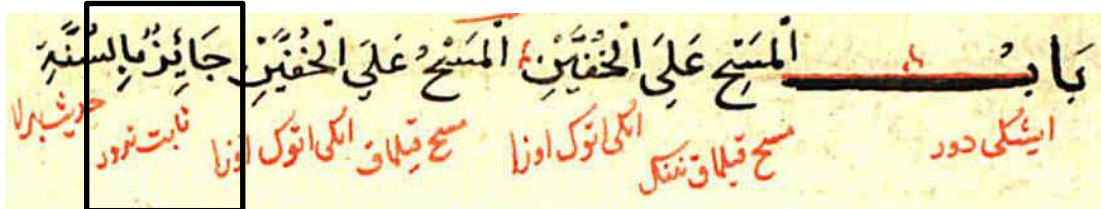 بَابُ الْمَسْحِ عَلَى الْخُفَّيْنِ الْمَسْحُ عَلَي الْخُفَّيْنِ جَائِزٌ بِالسُّنَّةِ
ايشكى دور مسح قيلماق ننكك ايكى اتوك اوزا مسح قيلماق ايكى اتوك اوزا ثابت تورور حديث بيرلا